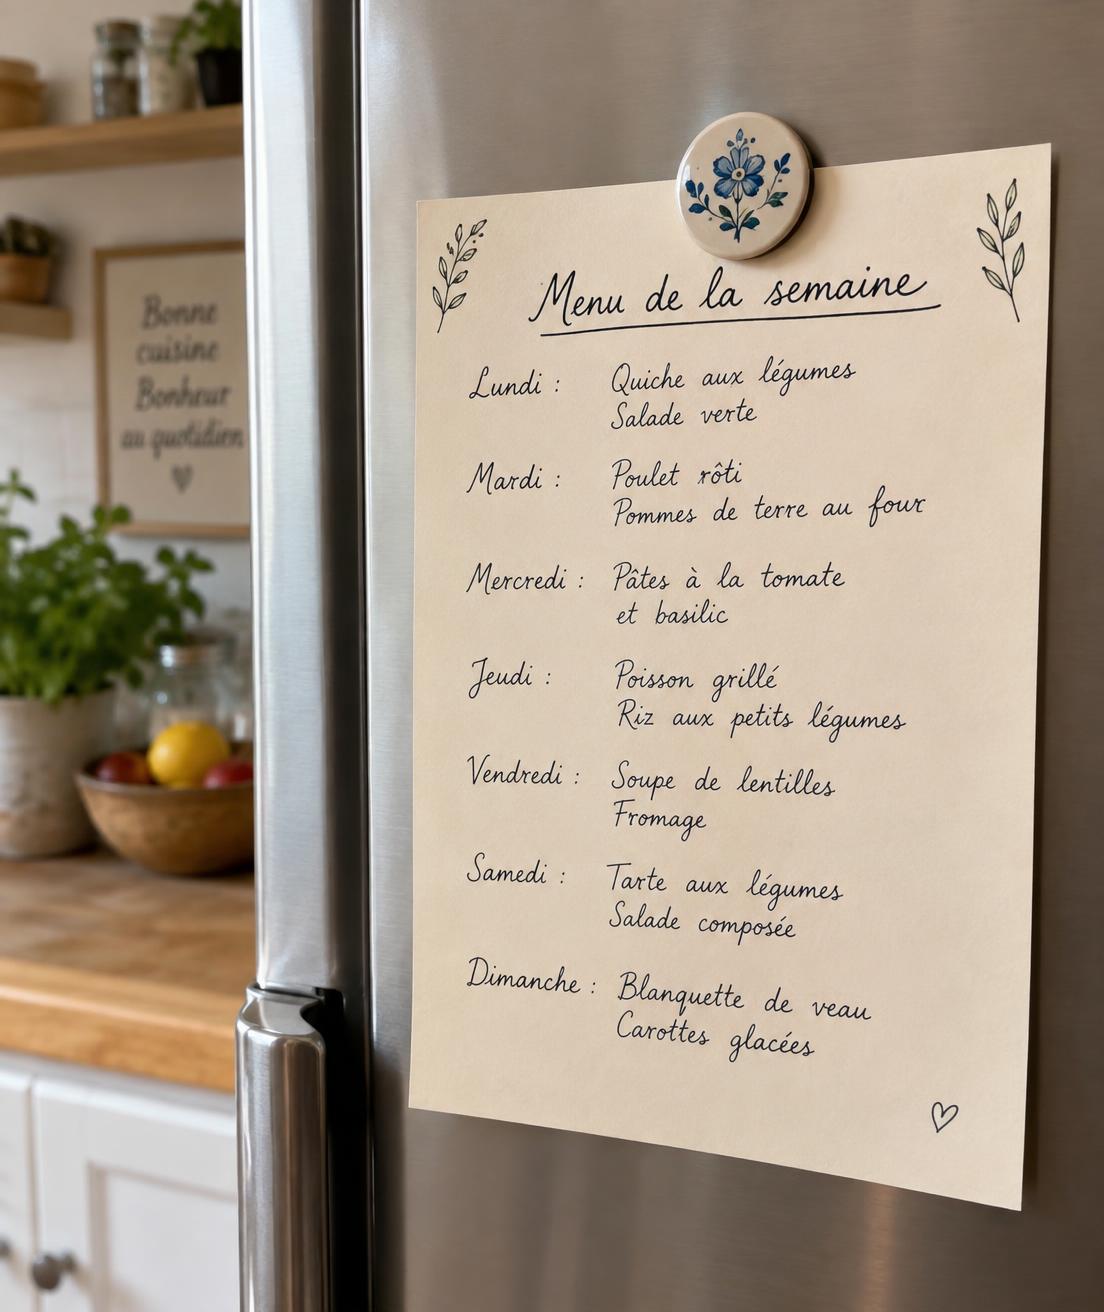 Bonne
cuisine
Bonheur
au quotidien
Menu de la semaine
Lundi : Quiche aux légumes
Salade verte
Mardi : Poulet rôti
Pommes de terre au four
Mercredi : Pâtes à la tomate
et basilic
Jeudi : Poisson grillé
Riz aux petits légumes
Vendredi : Soupe de lentilles
Fromage
Samedi : Tarte aux légumes
Salade composée
Dimanche : Blanquette de veau
Carottes glacées